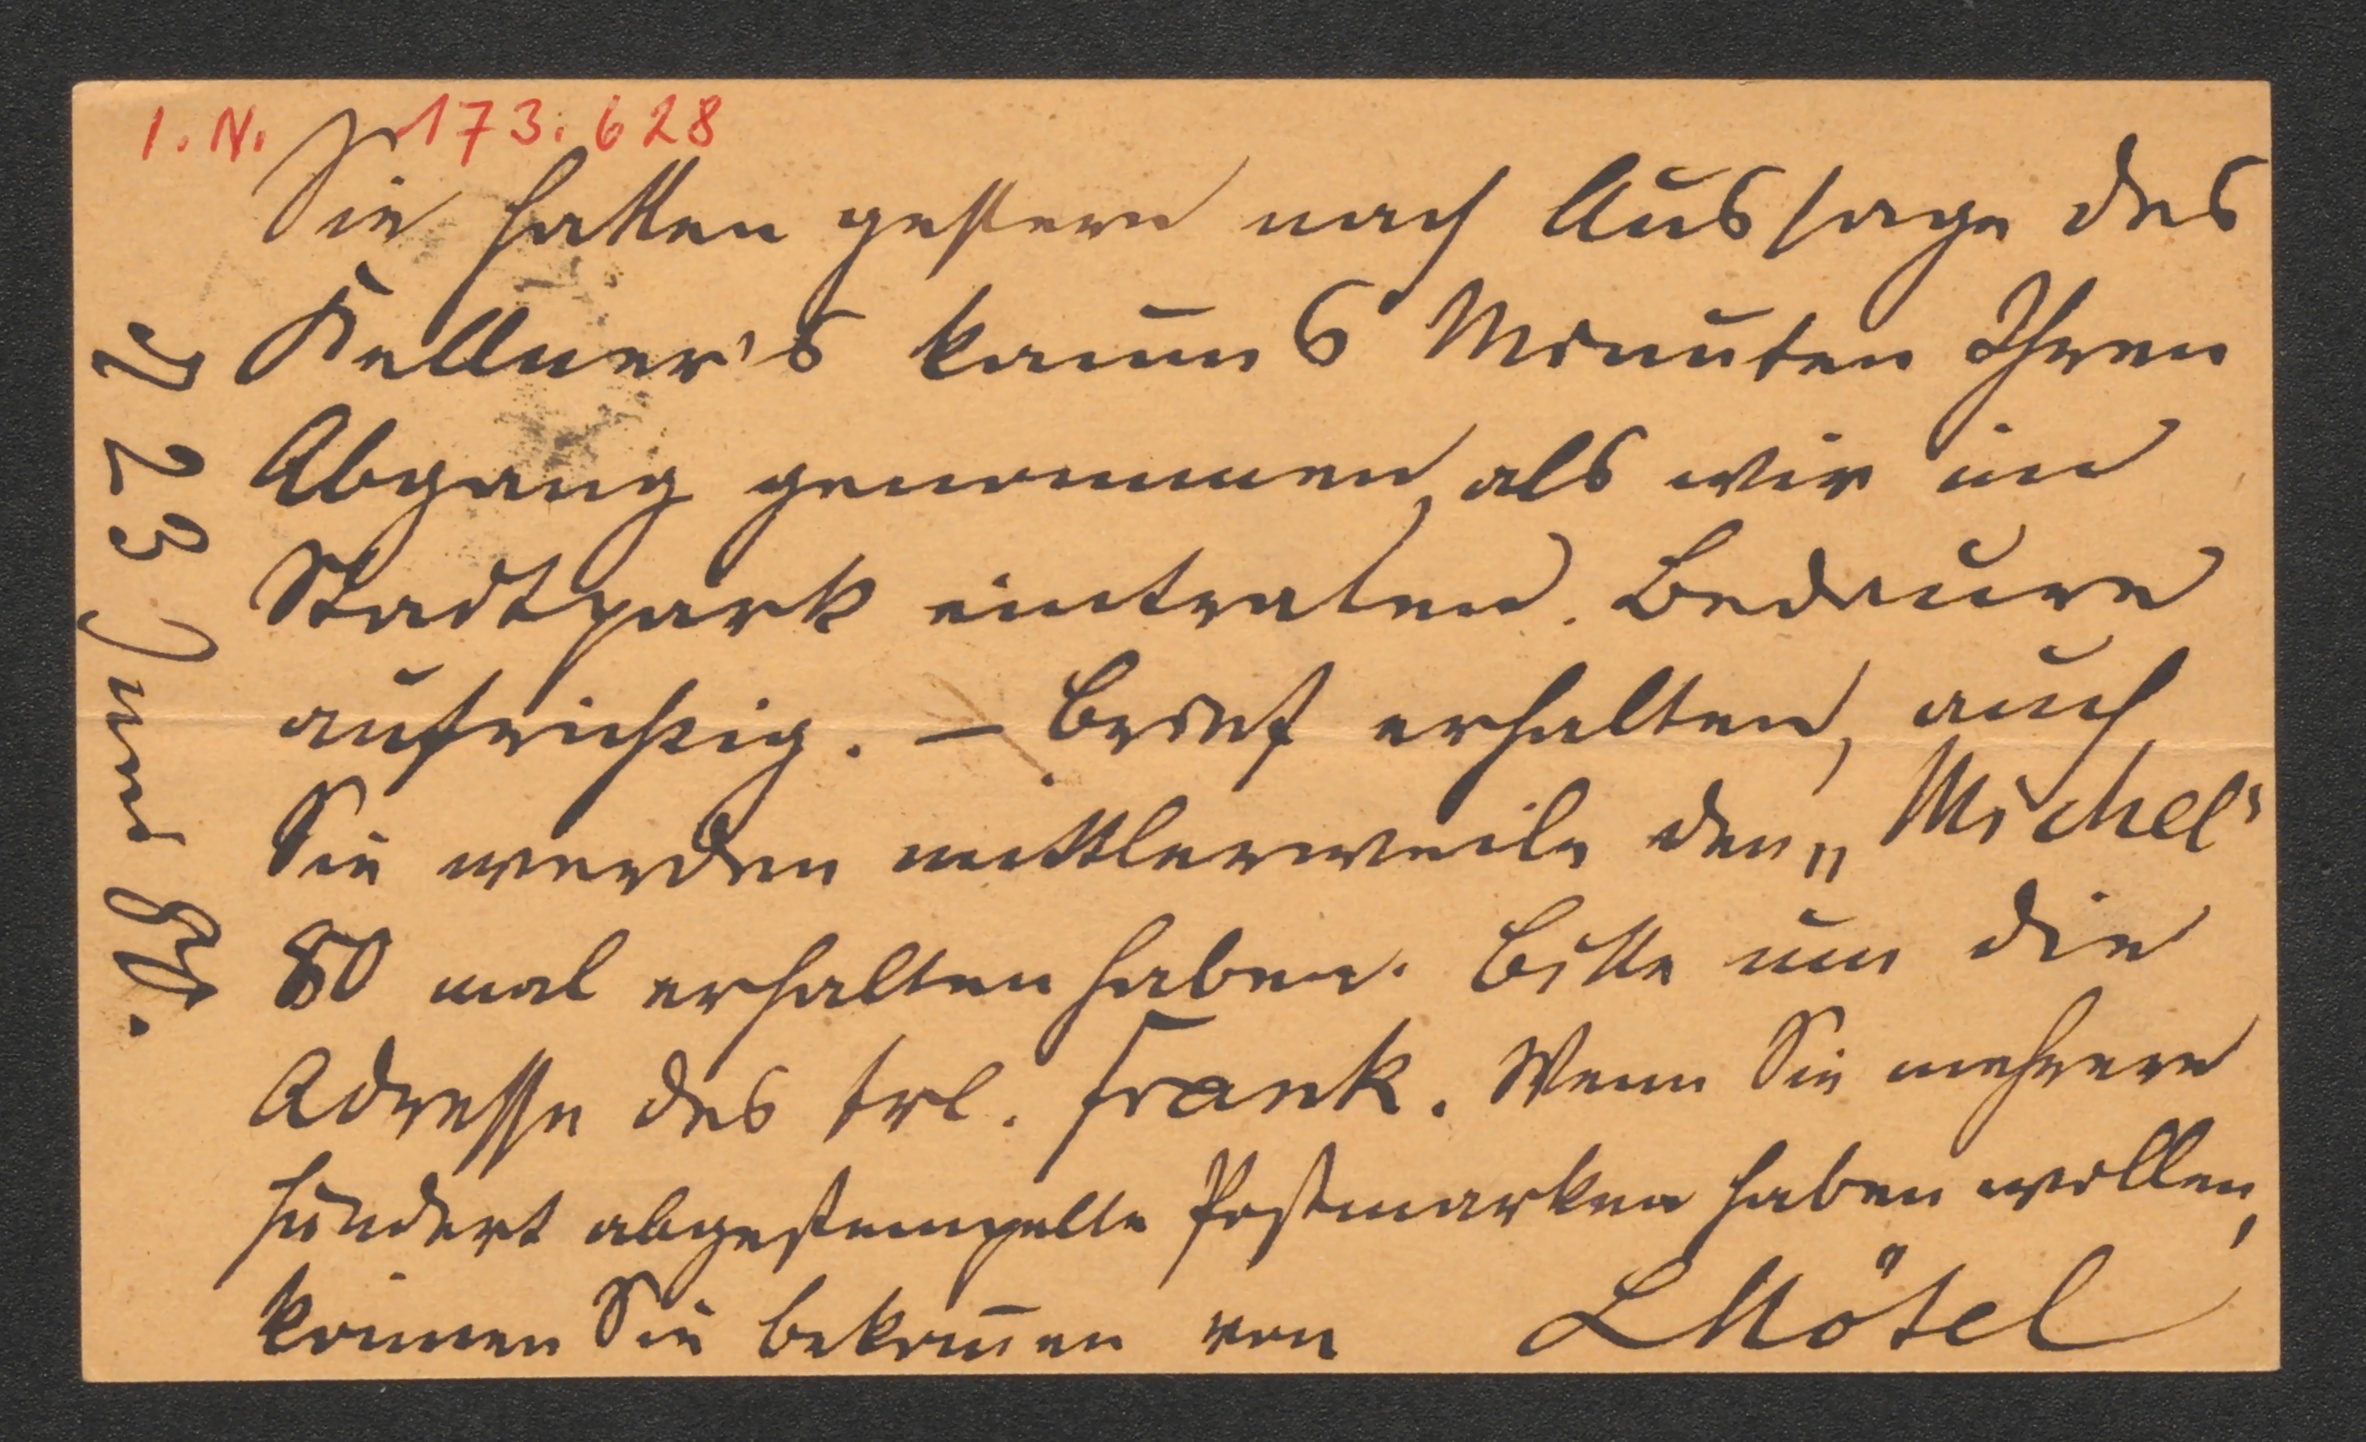 I. N. 173.628
Sie hatten gestern nach Aussage des
Kellner's kaum 6 Minuten Ihren
Abgang genommen, als wir im
Stadtpark eintraten. Bedaure
aufrichtig. — Brief erhalten, auch
Sie werden mittlerweile den „Michel"
80 mal erhalten haben. Bitte um die
Adresse des Frl. Frank. Wenn Sie mehrere
hundert abgestempelte Postmarken haben wollen,
können Sie bekom̄en von LMötel
23 Juni